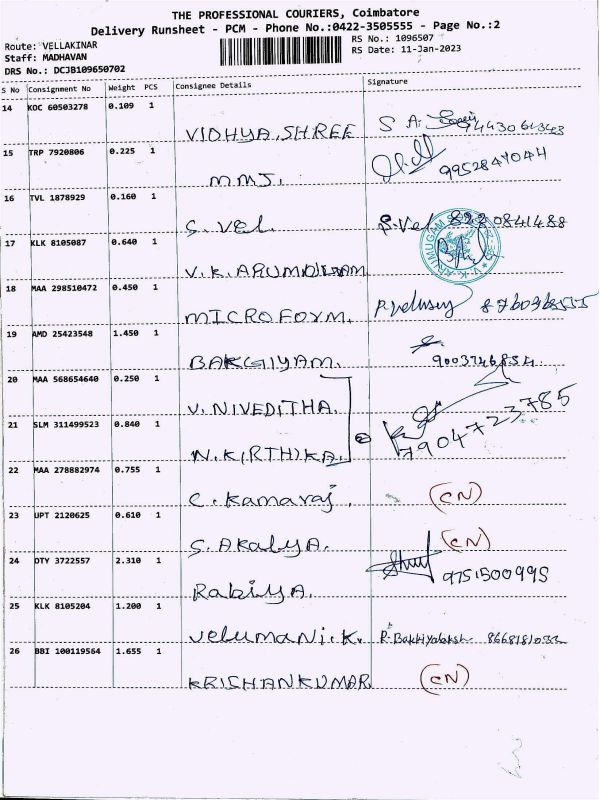 THE PROFESSIONAL COURIERS, Coimbatore
Delivery Runsheet - PCM - Phone No.:0422-3505555 - Page No.:2
Route: VELLAKINAR
RS No.: 1096507
Staff: MADHAVAN
RS Date: 11-Jan-2023
DRS No.: DCJB109650702
S No Consignment No Weight PCS Consignee Details Signature
14 KOC 60503278 0.109 1
VIDHYA.SHREE S A.
15 TRP 7920806 0.225 1
9952847044
MMJ.
16 TVL 1878929 0.160 1
S. Vel. S.Vel 8220841488
17 KLK 8105087 0.640 1
V.K.ARUMUGAM
18 MAA 298510472 0.450 1
MICROFORM.
19 AMD 25423548 1.450 1
BAKGIYAM. 9003746854
20 MAA 568654640 0.250 1
V. NIVEDITHA.
21 SLM 311499523 0.840 1
7904723785
N.KIRTHIKA.
22 MAA 278882974 0.755 1
C. Kamaraj. (CN)
23 UPT 2120625 0.610 1
S. AKalYA. (CN)
24 OTY 3722557 2.310 1
9751500995
RabiYA.
25 KLK 8105204 1.200 1
Velumani.K.
26 BBI 100119564 1.655 1
KRISHANKUMAR (CN)